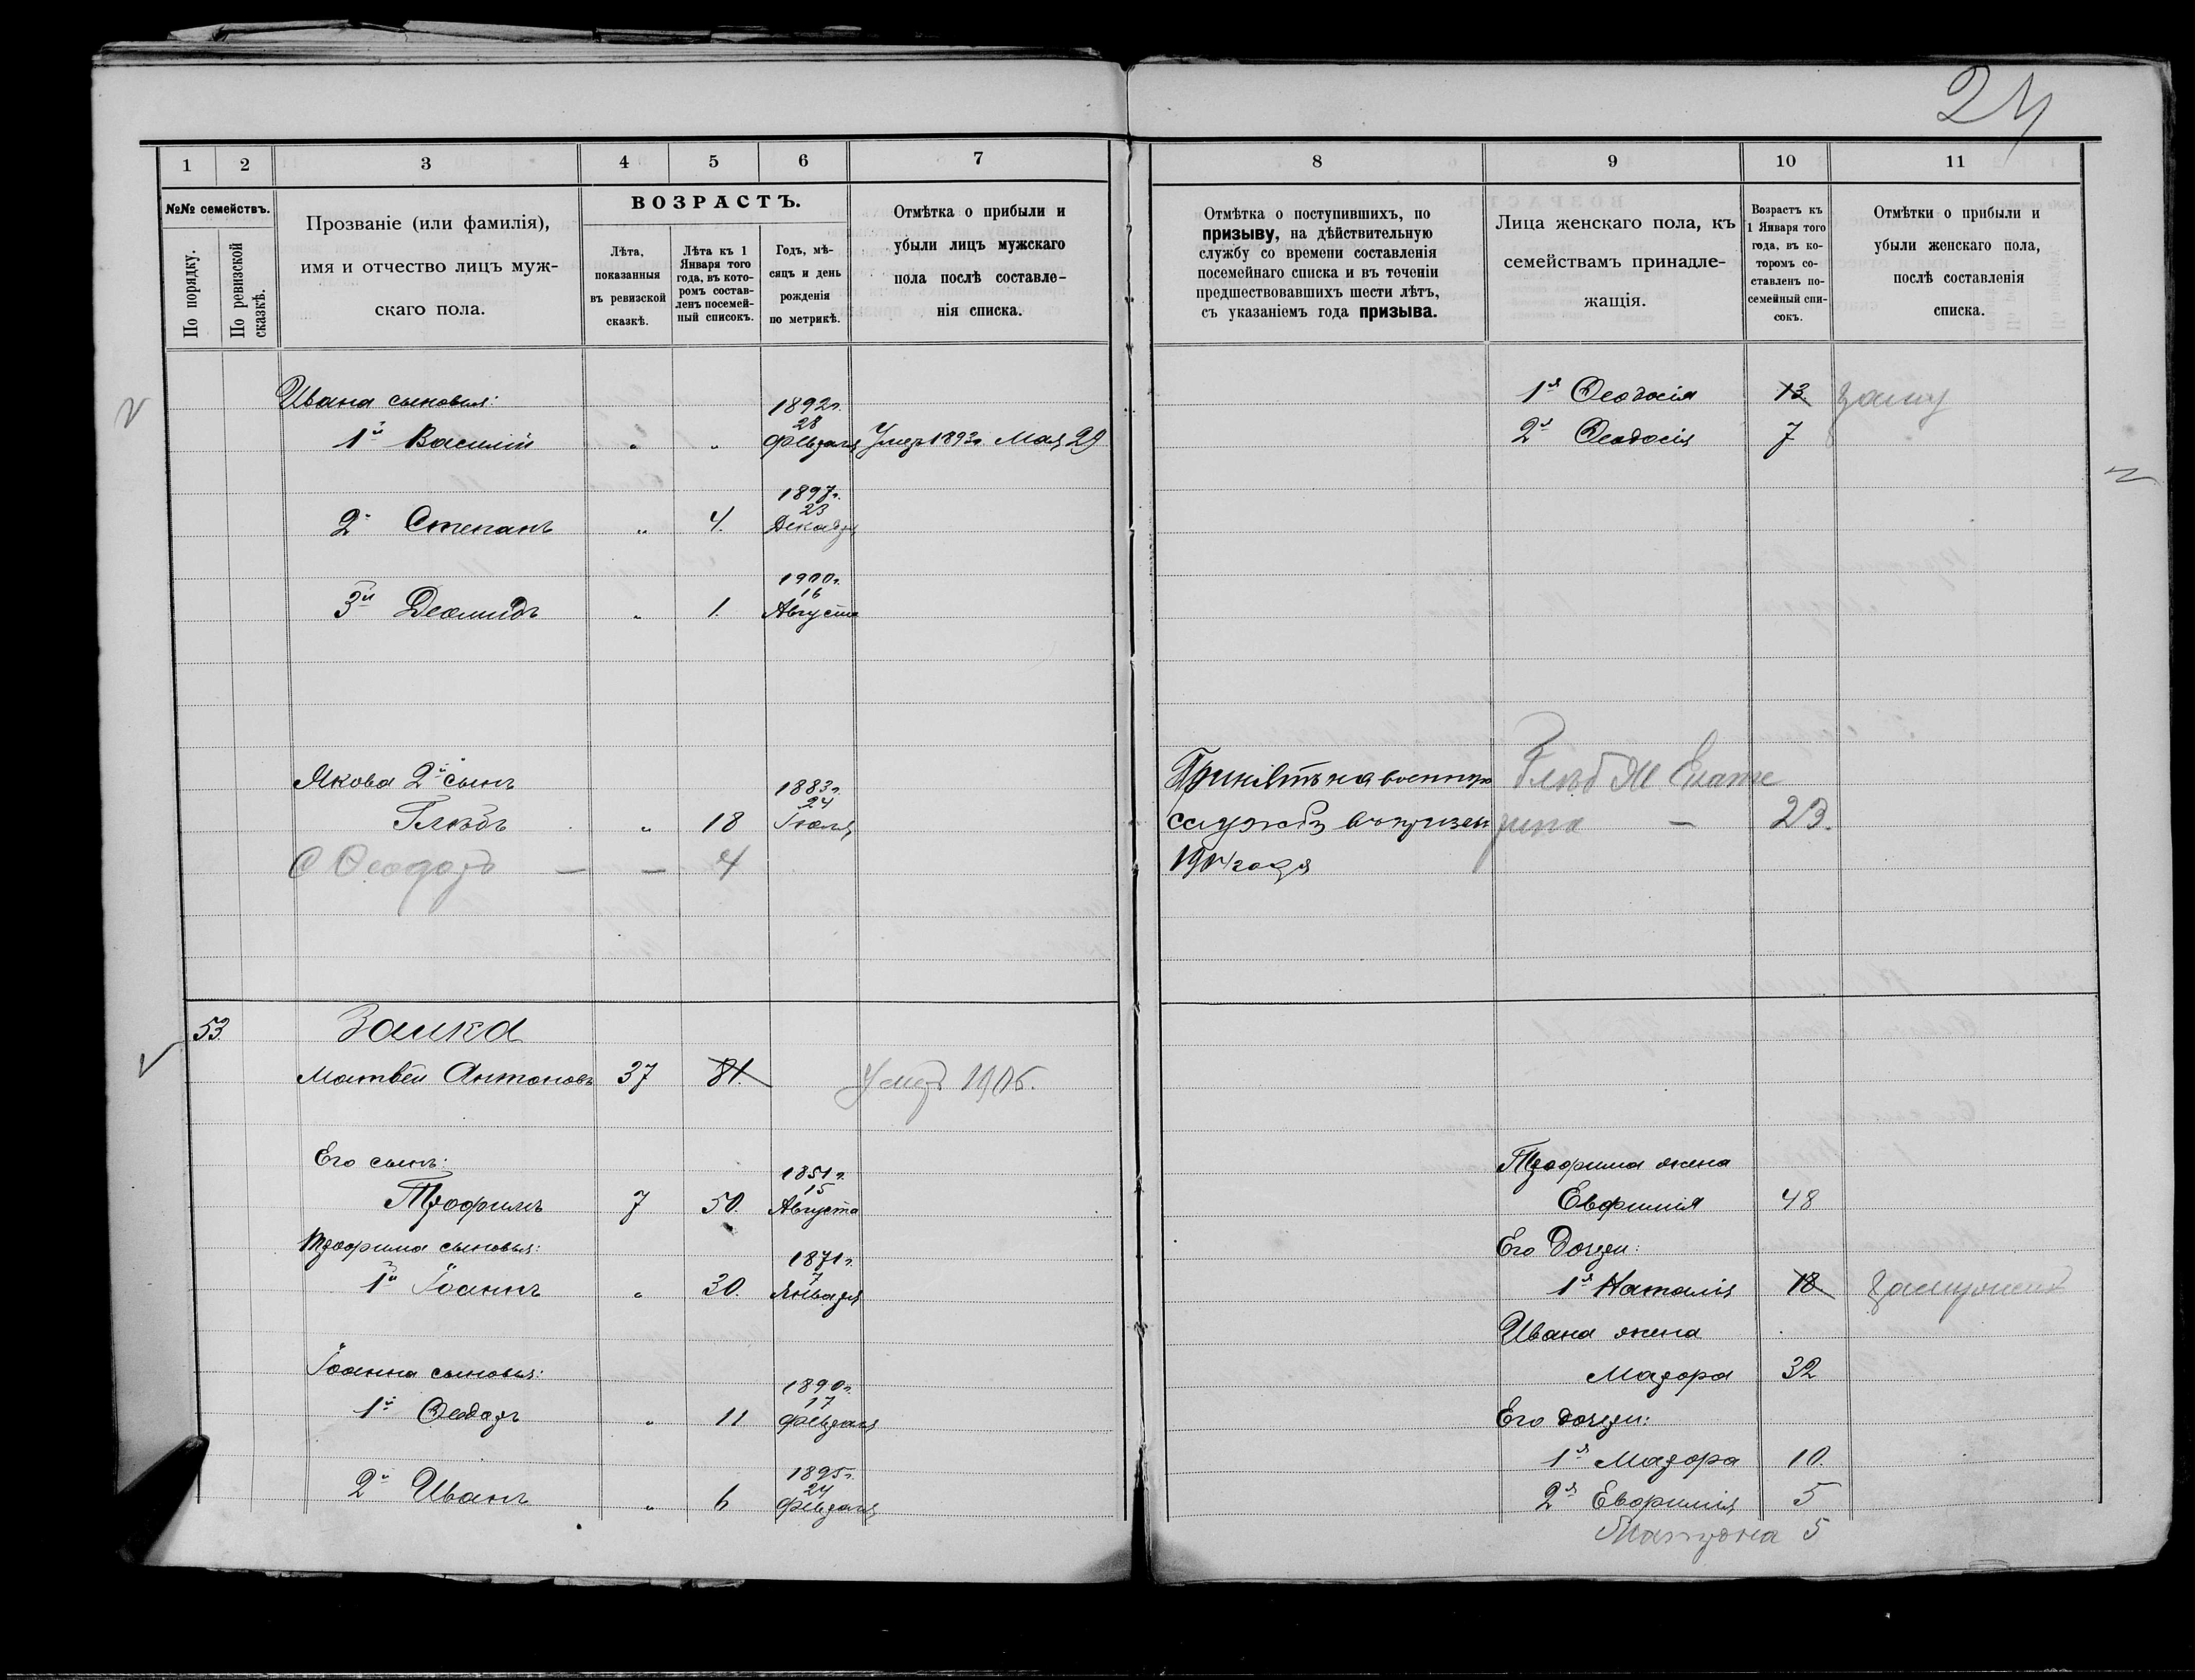 24
1 2 3 4 5 6 7
№№ семействъ.
По порядку.
По ревизской сказкѣ.
Прозваніе (или фамилія), имя и отчество лицъ мужскаго пола.
ВОЗРАСТЪ.
Лѣта, показанныя въ ревизской сказкѣ.
Лѣта къ 1 Января того года, въ которомъ составленъ посемейный списокъ.
Годъ, мѣсяцъ и день рожденія по метрикѣ.
Отмѣтка о прибыли и убыли лицъ мужскаго пола послѣ составленія списка.
8 9 10 11
Отмѣтка о поступившихъ, по призыву, на дѣйствительную службу со времени составленія посемейнаго списка и въ теченіи предшествовавшихъ шести лѣтъ, съ указаніемъ года призыва.
Лица женскаго пола, къ семействамъ принадлежащія.
Возрастъ къ 1 Января того года, въ которомъ составленъ посемейный списокъ.
Отмѣтки о прибыли и убыли женскаго пола, послѣ составленія списка.
Ивана сыновья:
1й Василій " " 1892г. 28 Февраля Умеръ 1893г. Мая 29
2й Степанъ " 4. 1897г. 23 Декабр
3й Деомидъ " 1. 1900г. 16 Августа
Якова 2й сынъ
Глѣбъ " 18 1883г. 24 Іюля
С Ѳеодоръ — — 4
53. Заика
Матвѣй Антоновъ 37 81. Умеръ 1906.
Его сынъ:
Трофимъ 7 50. 1851г. 15 Августа
Трофима сыновья:
1й Іоаннъ " 30. 1871г. 7 Января
Іоанна сыновья:
1й Ѳеодоръ " 11 1890г. 17 Февраля
2й Иванъ " 6 1895г. 24 Февраля
1я Ѳеодосія 13 заму
2я Ѳеодосія 7
Принятъ на военную Глѣб Ж Екате
службу въ призывъ рина — 23.
1904 года
Трофима жена
Евфимія 48
Его дочери:
1я Наталія 18 замужем
Ивана жена
Мавра 32
Его дочери:
1я Мавра 10.
2я Евфимія 5
Матрона 5